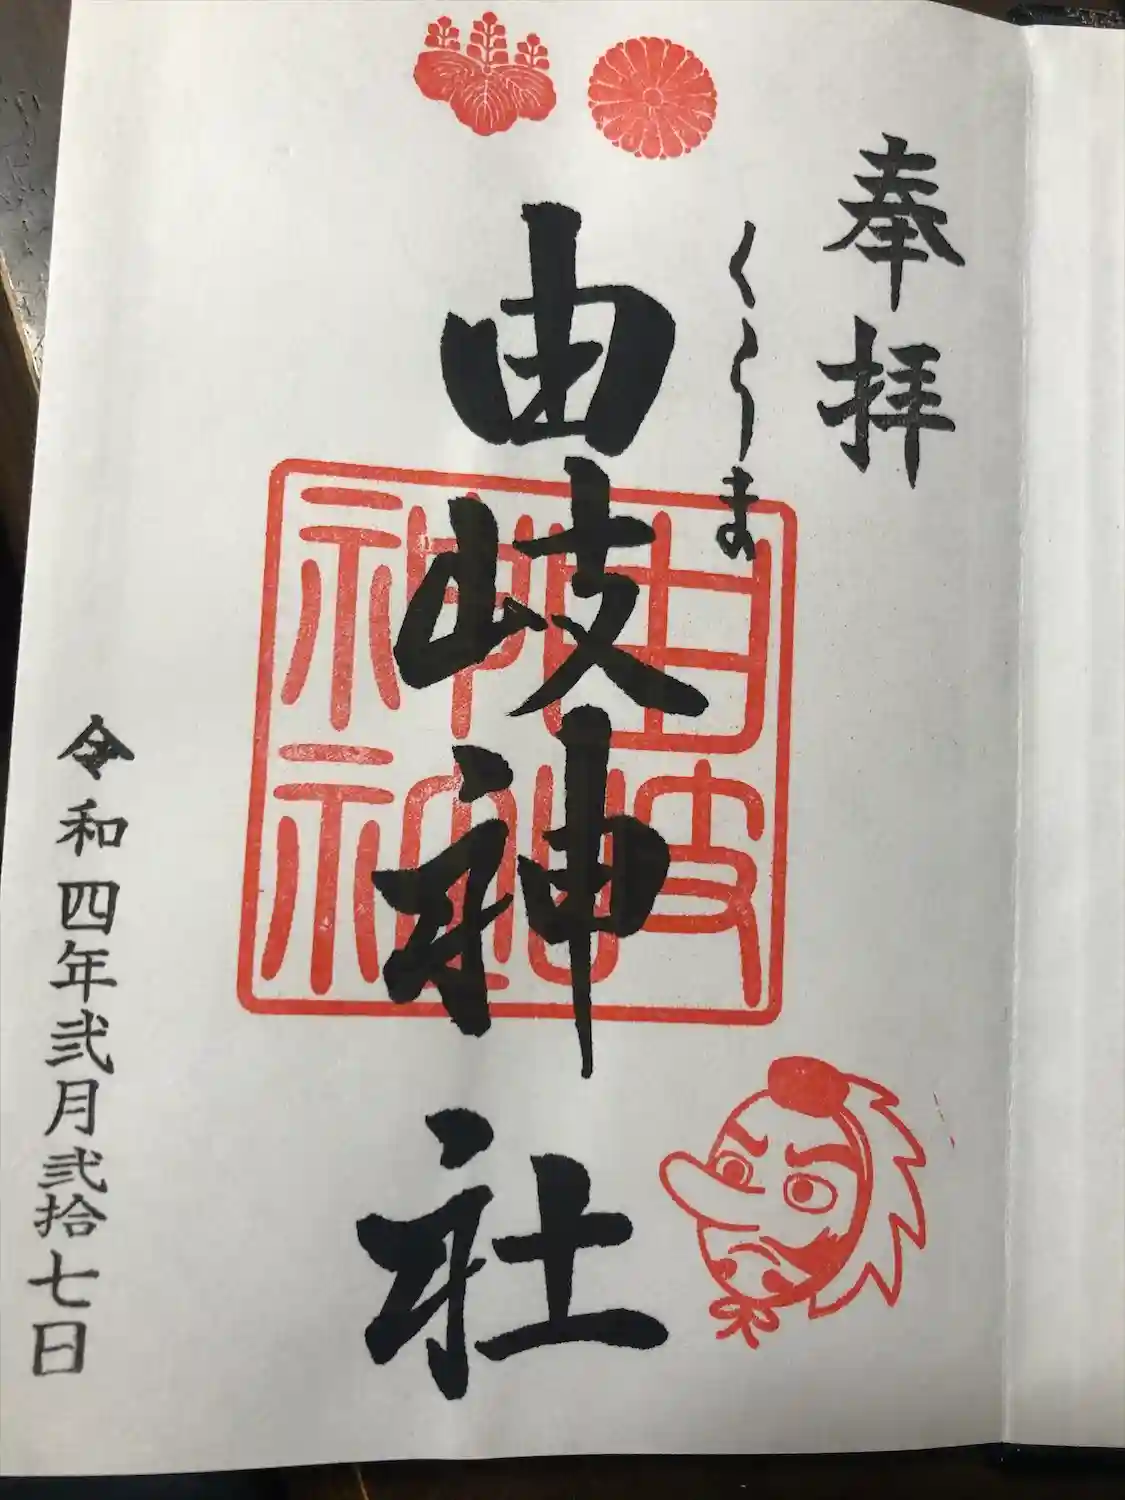 奉拝
くらま
由岐神社
由岐神社
令和四年弐月弐拾七日